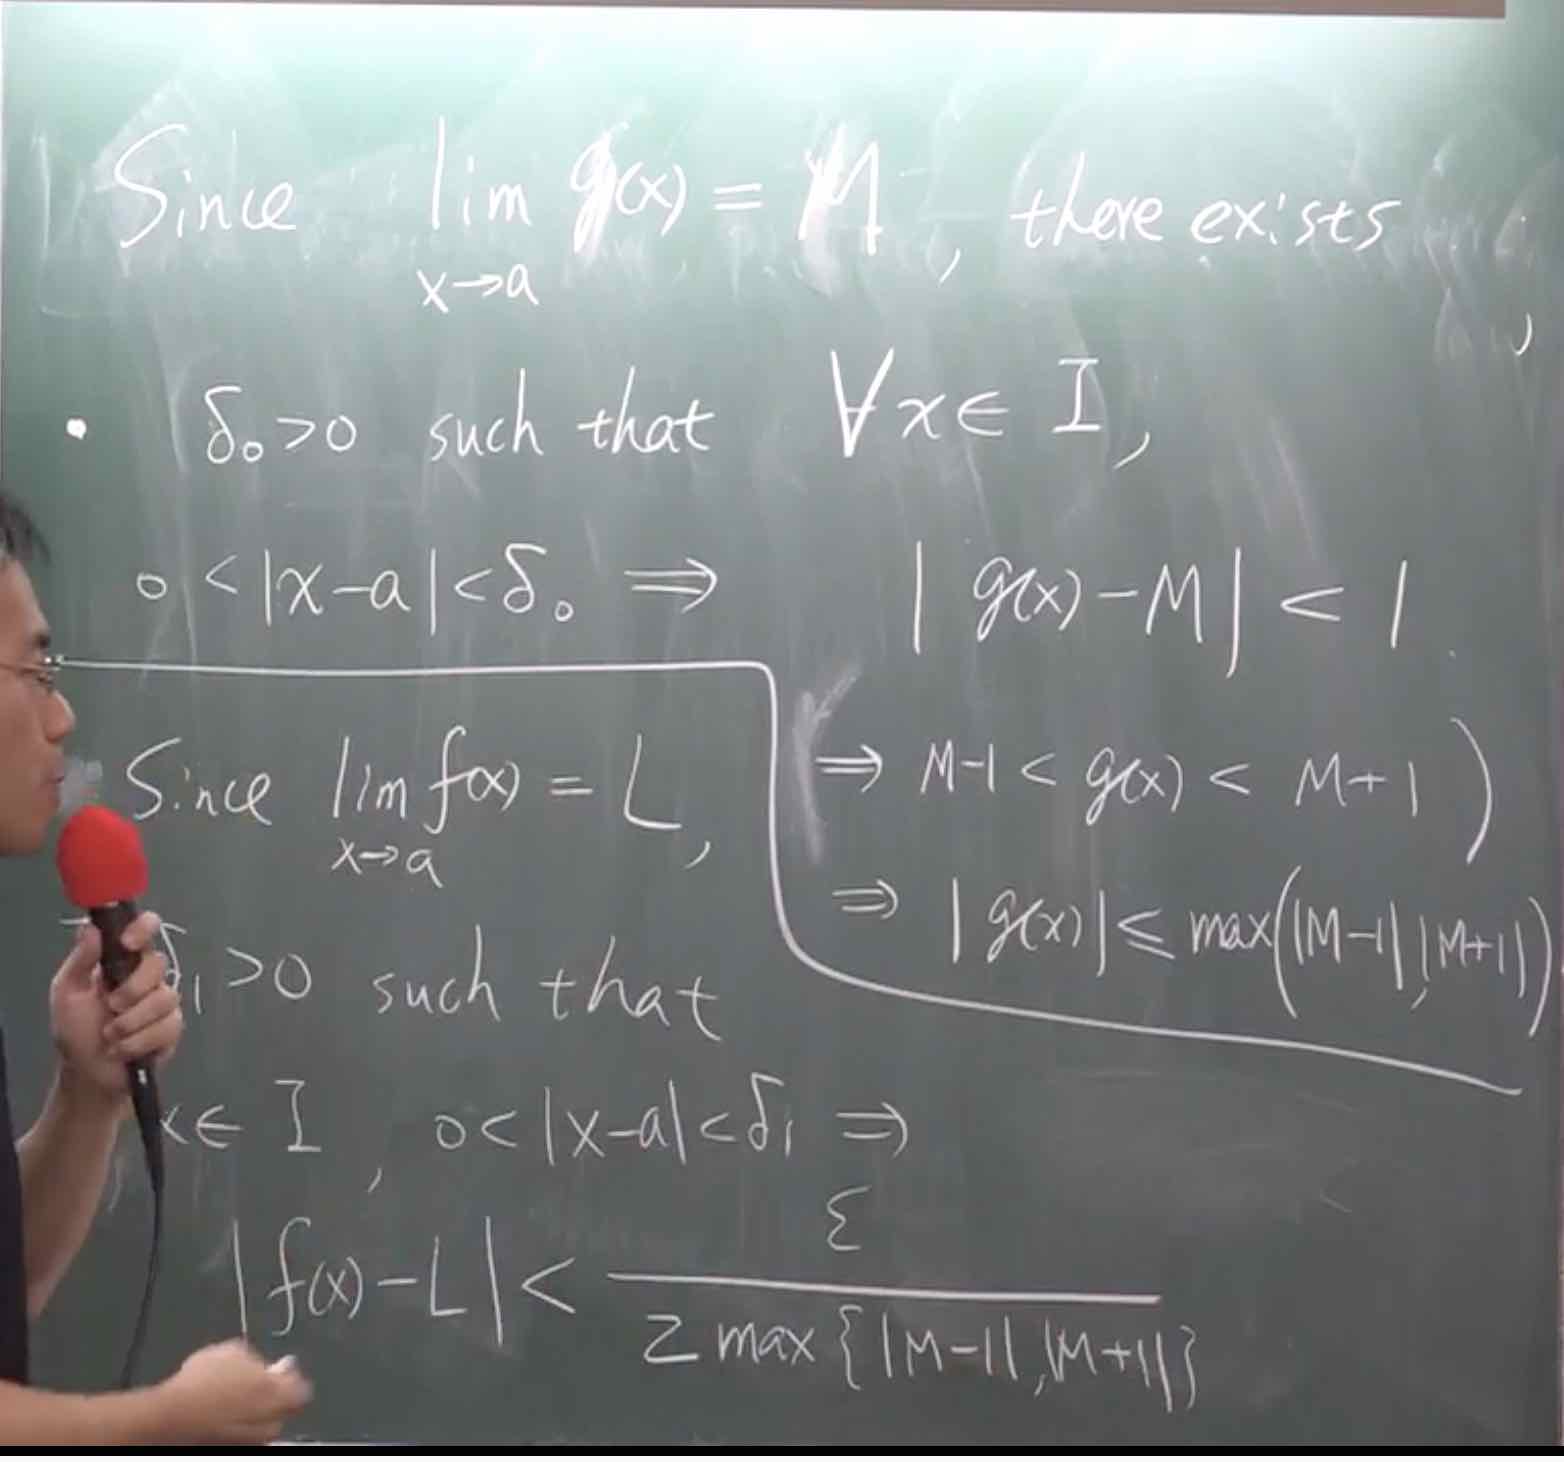 Since lim g(x) = M, there exists
x→a
δ₀>0 such that ∀x∈ I,
0<|x-a|<δ₀ ⇒ |g(x)-M| < 1
⇒ M-1 < g(x) < M+1)
⇒ |g(x)| ≤ max(|M-1|,|M+1|)
Since lim f(x) = L,
x→a
δ₁>0 such that
x∈ I, 0<|x-a|<δ₁ ⇒
|f(x)-L| < ε
2 max{|M-1|,|M+1|}